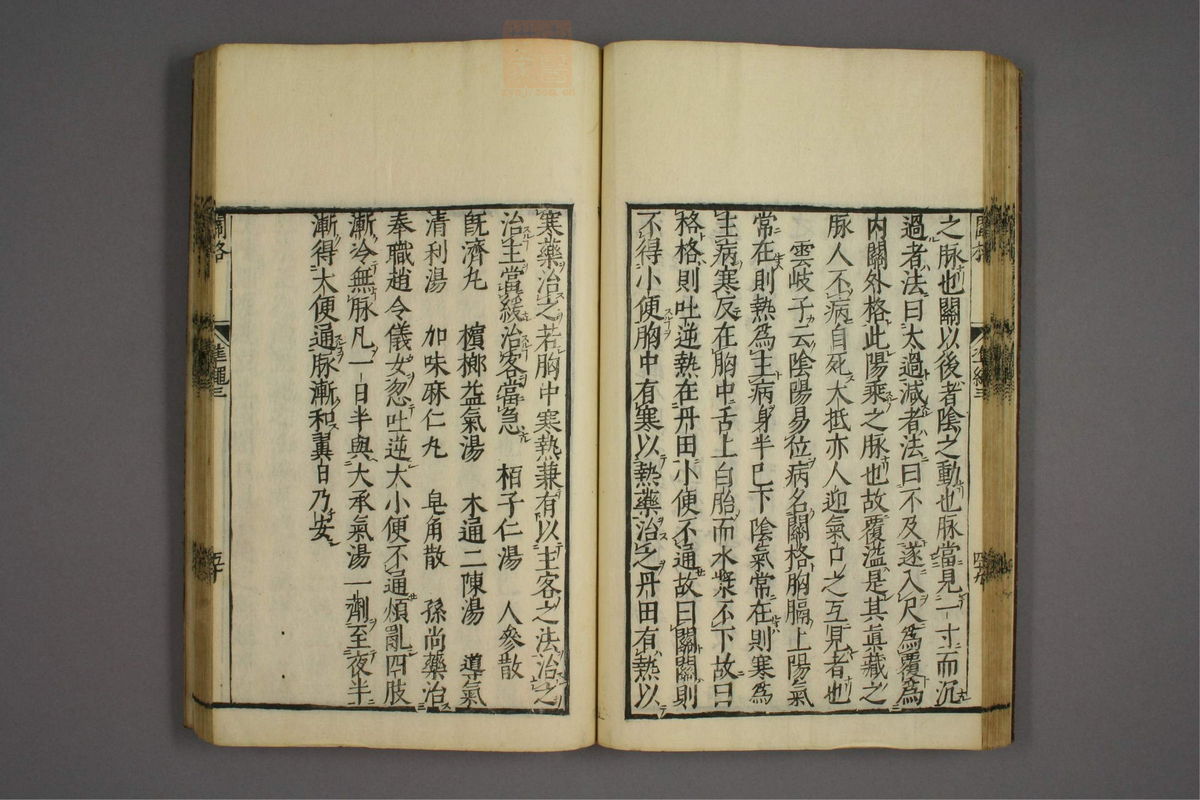 之脉也關以後者陰之動也脉當見一寸而沉
過者法曰太過減者法曰不及遂入尺爲覆爲
內關外格此陽乘之脉也故覆溢是其眞藏之
脉人不病自死大抵亦人迎氣口之互見者也
雲岐子云陰陽易位病名關格胸膈上陽氣
常在則熱爲主病身半已下陰氣常在則寒爲
主病寒反在胸中舌上白胎而水漿不下故曰
格格則吐逆熱在丹田小便不通故曰關關則
不得小便胸中有寒以熱藥治之丹田有熱以
寒藥治之若胸中寒熱兼有以主客之法治之
治主當緩治客當急 栢子仁湯 人參散
旣濟丸 檳榔益氣湯 木通二陳湯 導氣
清利湯 加味麻仁丸 皂角散 孫尚藥治
奉職趙令儀女忽吐逆大小便不通煩亂四肢
漸冷無脉凡一日半與大承氣湯一劑至夜半
漸得大便通脉漸和翼日乃安
關格
準繩三
五十